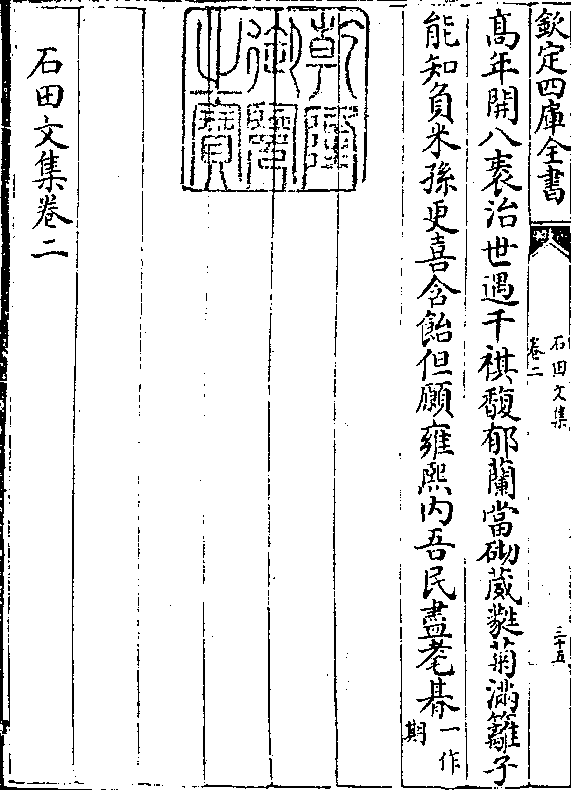 欽定四庫全書
石田文集
卷二
三十五
髙年開八袠治世遇千祺馥郁蘭當砌葳蕤菊滿籬子
能知負米孫更喜含飴但願雍熙内吾民盡耄朞一作期
乾隆御覽之寶
石田文集卷二